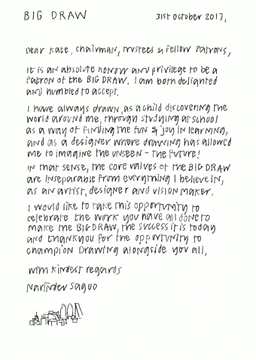 BIG DRAW 31st October 2017,
Dear Kate, chairman, trustees & fellow Patrons,
It is an absolute honour and privilege to be a
Patron of the BIG DRAW. I am both delighted
and humbled to accept.
I have always drawn, as a child discovering the
world around me, through studying at school
as a way of finding the fun & joy in learning,
and as a designer where drawing has allowed
me to imagine the unseen - the future!
In that sense, the core values of the BIG DRAW
are inseparable from everything I believe in,
as an artist, designer and vision maker.
I would like to take this opportunity to
celebrate the work you have all done to
make the BIG DRAW, the success it is today
and thankyou for the opportunity to
champion Drawing alongside you all,
with kindest regards
Narinder Sagoo